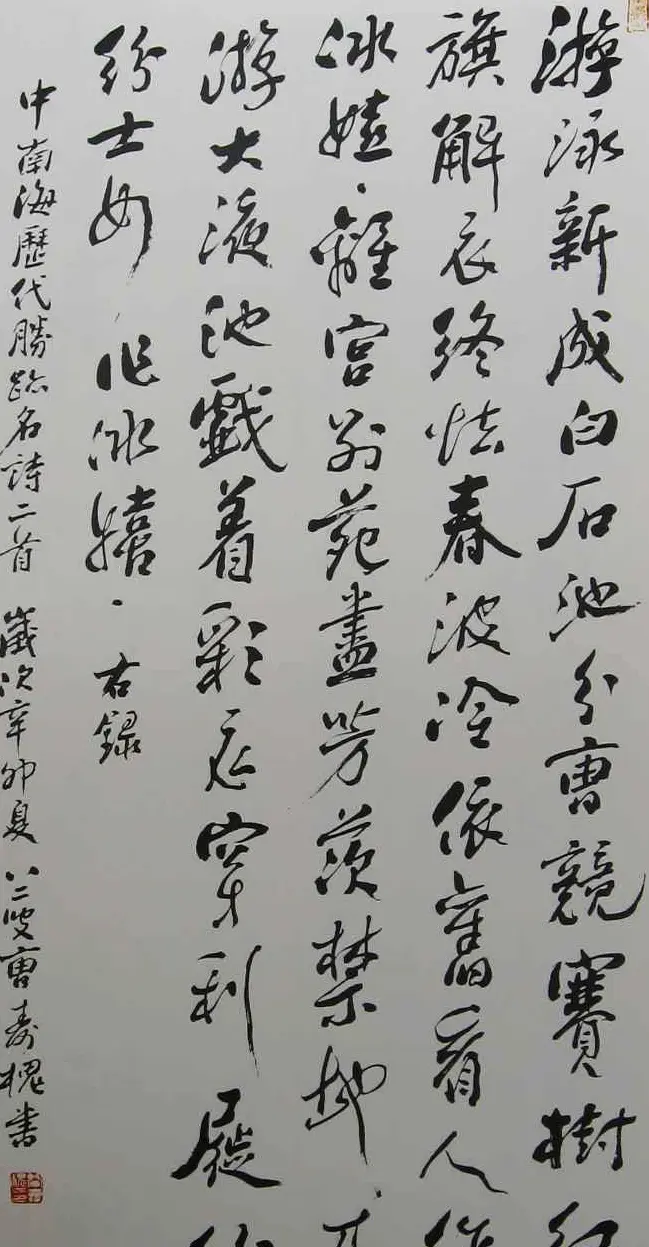 游泳新成白石池分曹競賽樹紅
旗解衣終怯春波冷依舊看人作
冰嬉離宮別苑盡芳茨禁地
游太液池戲着彩衣穿利屣紛
紛士女作冰嬉右錄
中南海歷代勝跡名詩二首歲次辛卯夏八二叟曹壽槐書